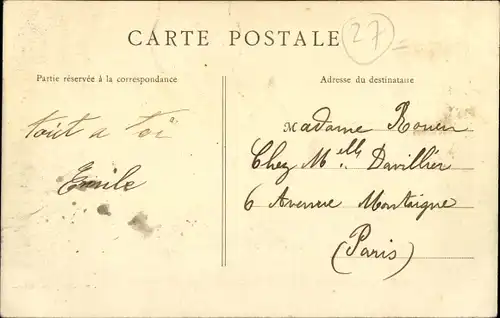 CARTE POSTALE
27
Partie réservée à la correspondance
Adresse du destinataire
tout a toi
Emile
Madame Rouen
Chez Melle Davillier
6 Avenue Montaigne
(Paris)